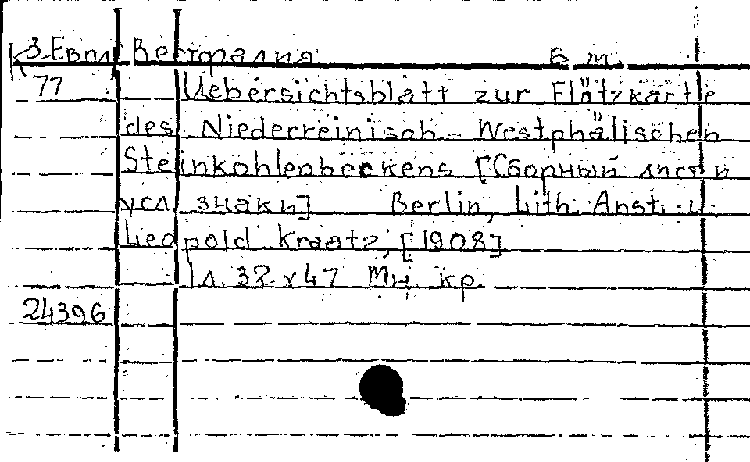 К З-Евпл Вестфалия Б. м.
77 Uebersichtsblatt zur Flötzkarte
des Niederreinisch-Westphälischen
Steinkohlenbeckens [Сборный лист и
усл. знаки] Berlin, Lith. Anst. u.
Leopold Kraatz, [1908]
1 л. 38 x 47 Мн. кр.
24396